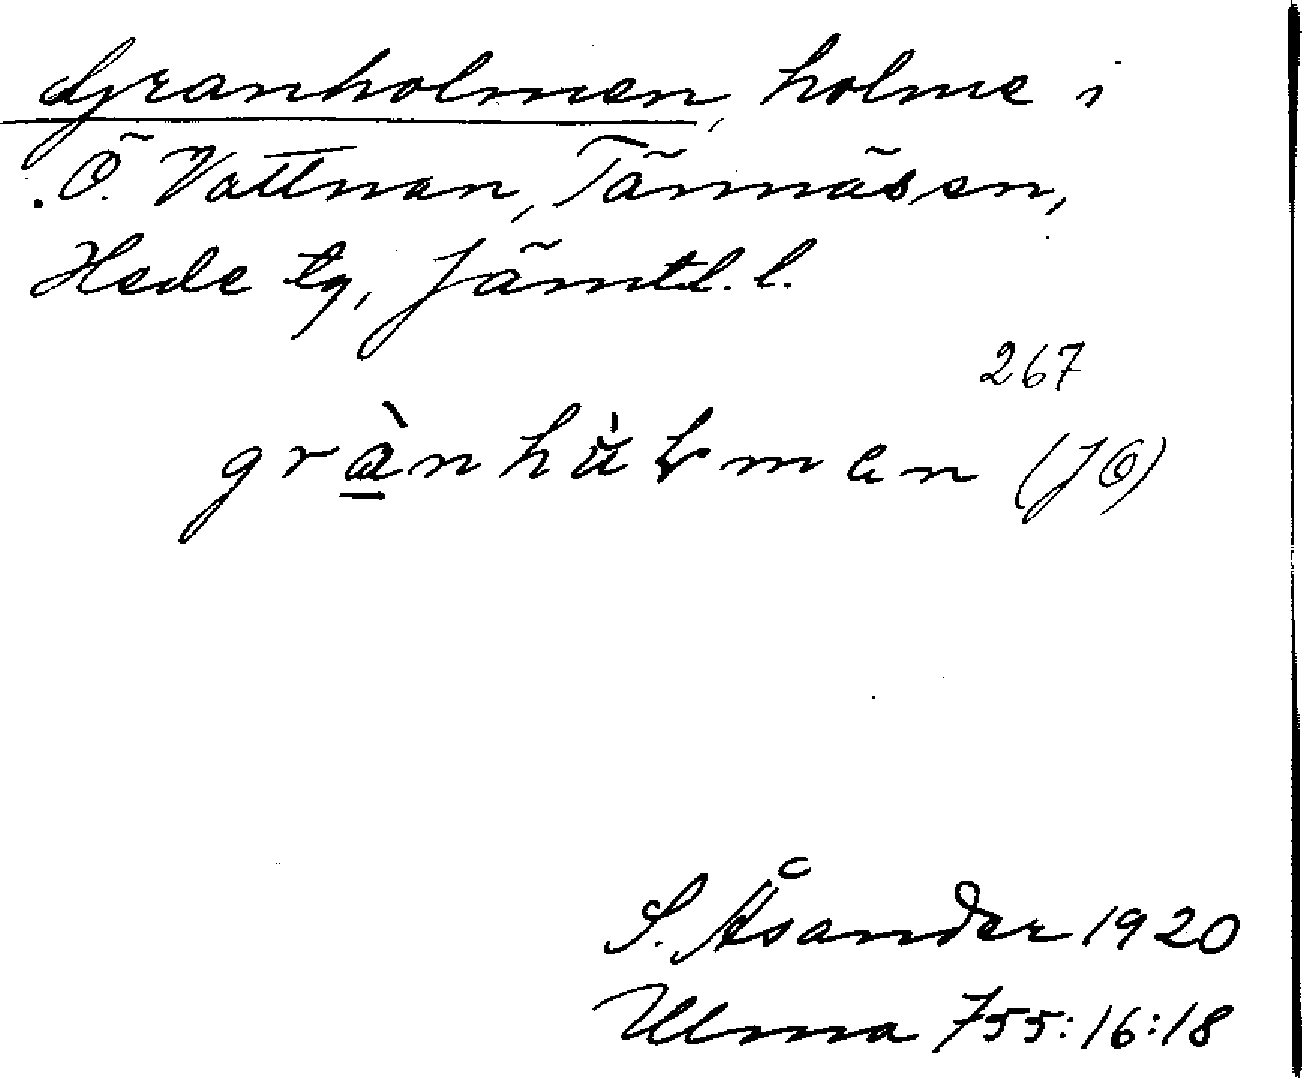 Granholmen, holme i
Ö. Vattnan, Tännäsen,
Hede tg, Jämtl. l.
267
(JÖ)
S. Åsander 1920
Ulma 755:16:18